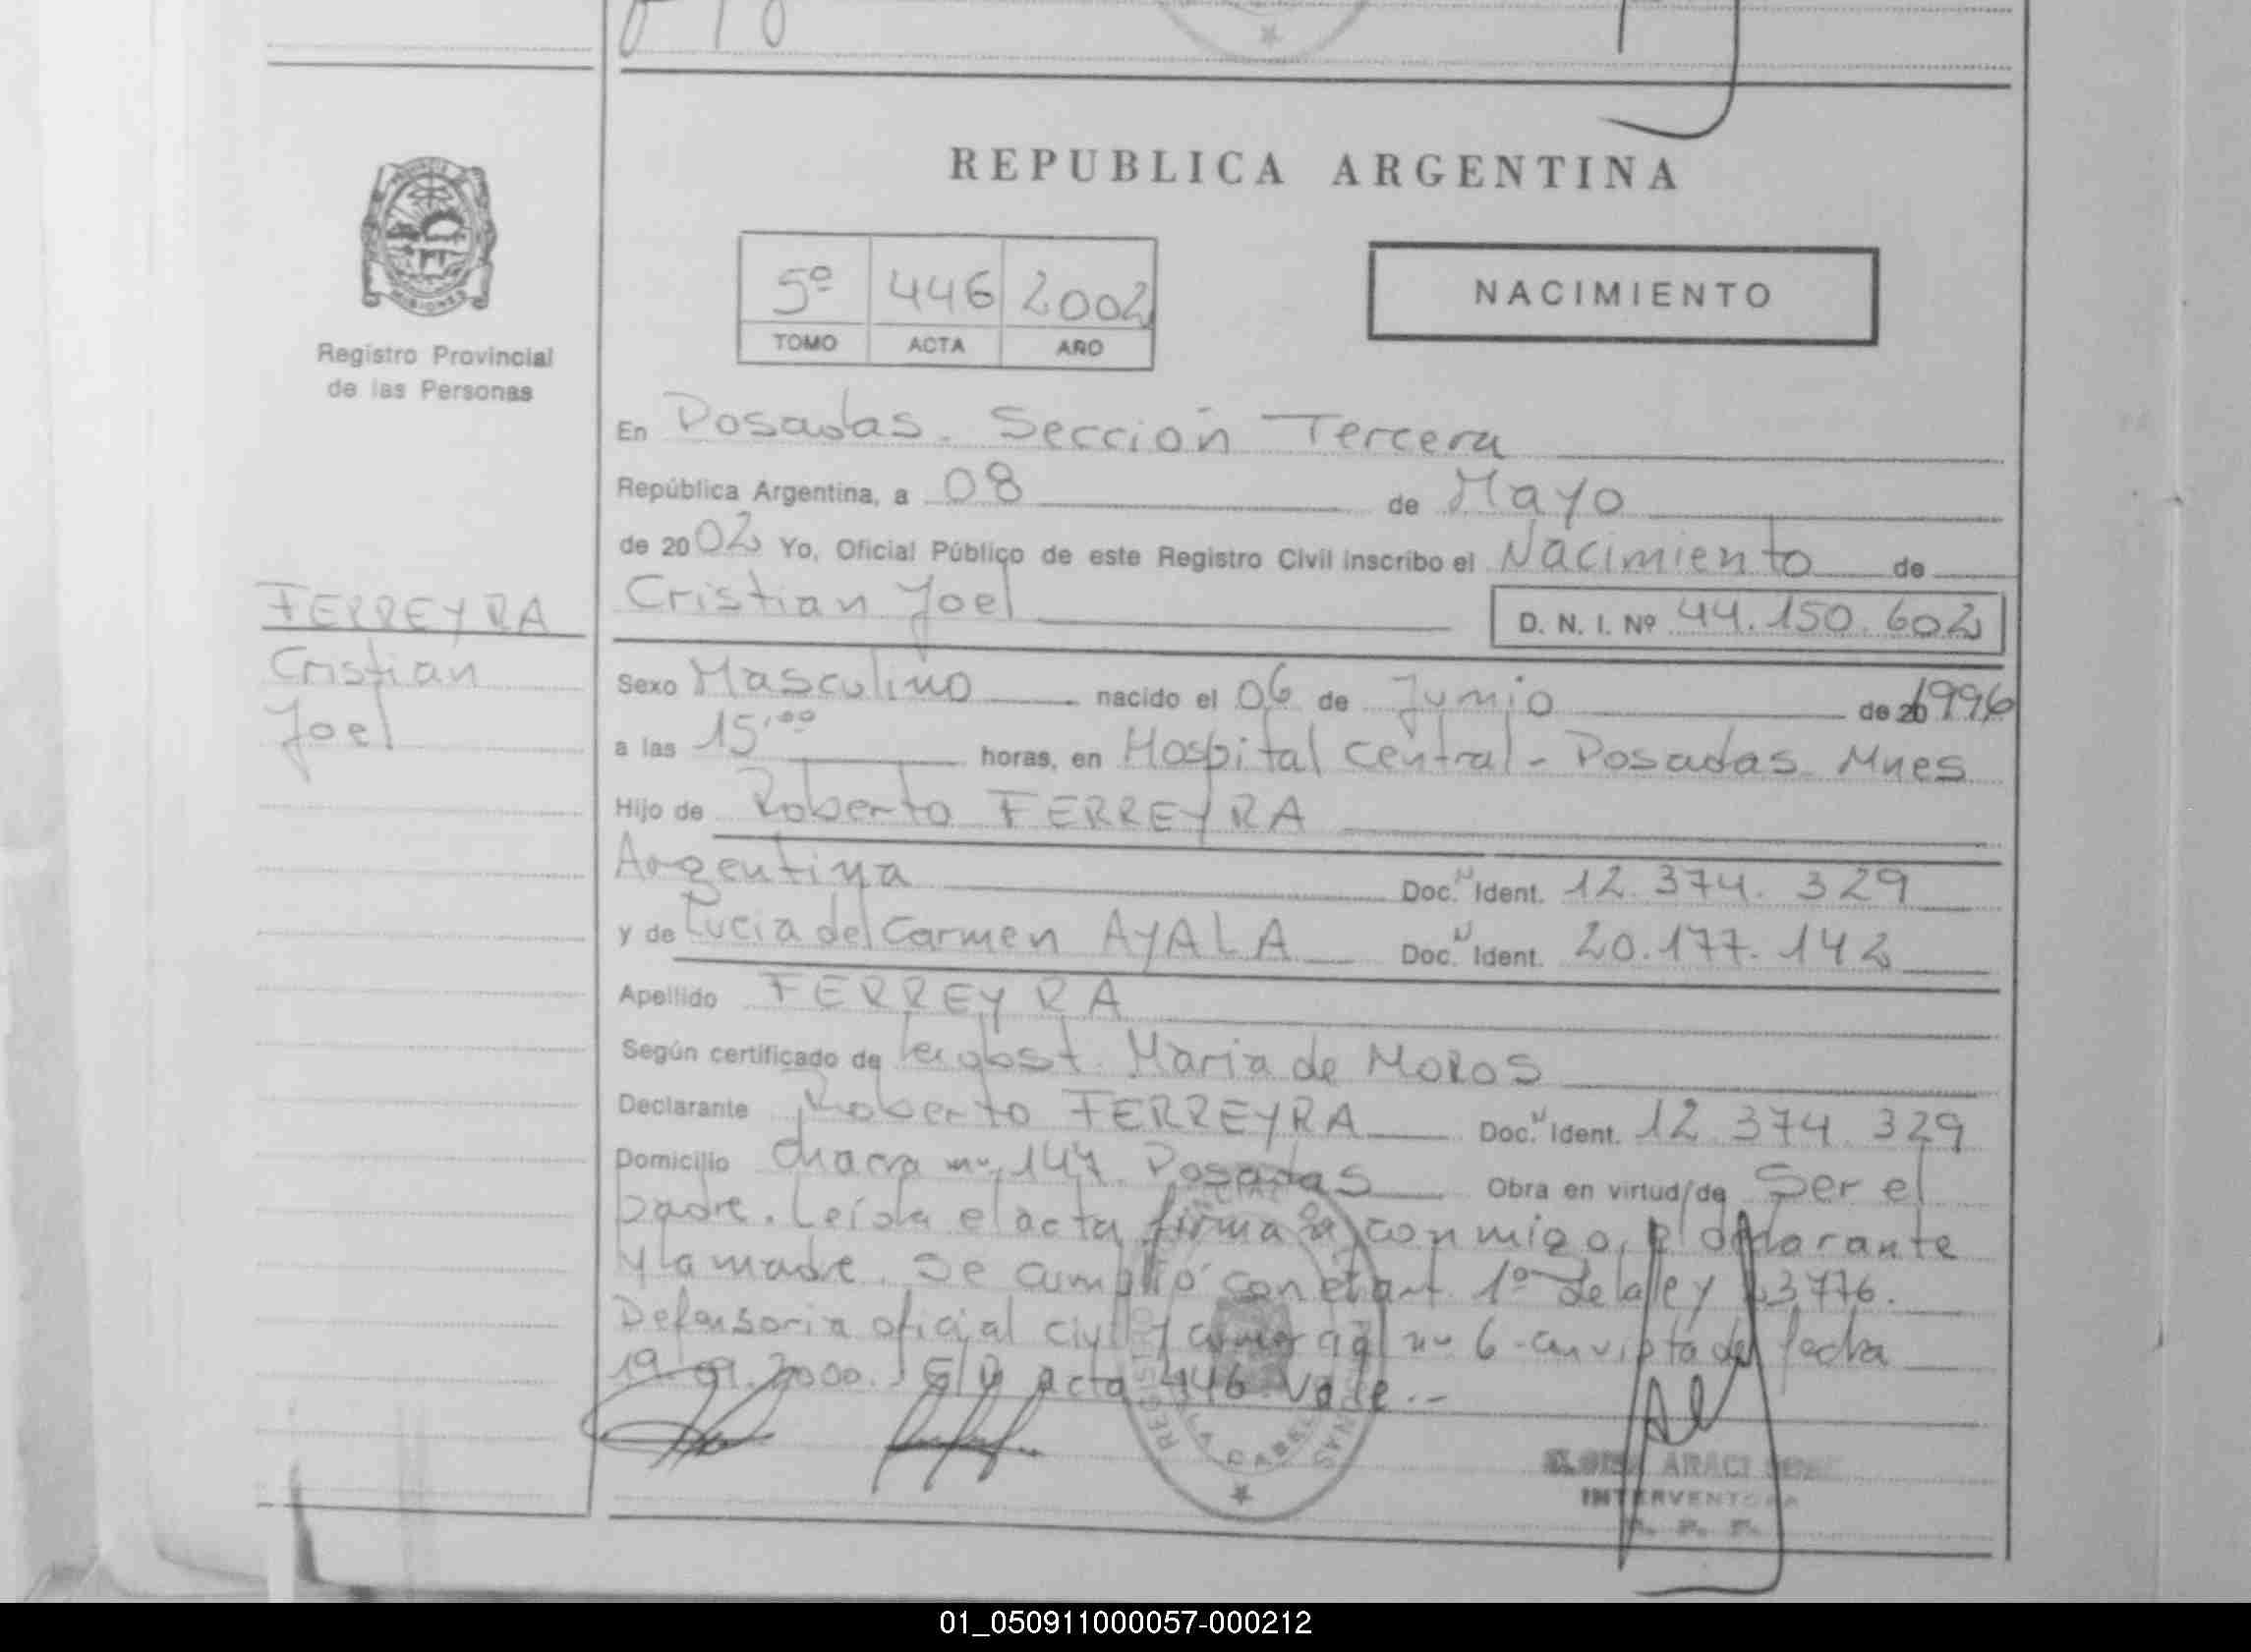 REPUBLICA ARGENTINA
MISIONES
Registro Provincial
de las Personas
5º 446 2002
TOMO ACTA AÑO
NACIMIENTO
En Posadas. Sección Tercera
República Argentina, a 08 de Mayo
de 2002 Yo, Oficial Público de este Registro Civil inscribo el Nacimiento de
FERREYRA
Cristian
Joel
Cristian Joel D. N. I. Nº 44.150.602
Sexo Masculino nacido el 06 de Junio de 20 1996
a las 15,00 horas, en Hospital Central - Posadas Mnes
Hijo de Roberto FERREYRA
Argentina Doc. N Ident. 12.374.329
y de Lucia del Carmen AYALA Doc. N Ident. 20.177.142
Apellido FERREYRA
Según certificado de Maria de MOROS
Declarante Roberto FERREYRA Doc. N Ident. 12.374.329
Domicilio Chacra nº 147 Posadas Obra en virtud/de Ser el
padre. Leída el acta firma conmigo, el declarante
y la madre. Se cumplió con el art. 1º de la ley 23.776.
Defensoria oficial civil y nº 6 - fecha
19.09.2000. acta 446. Vale.-
ARACI
INTERVENTORA
01_050911000057-000212